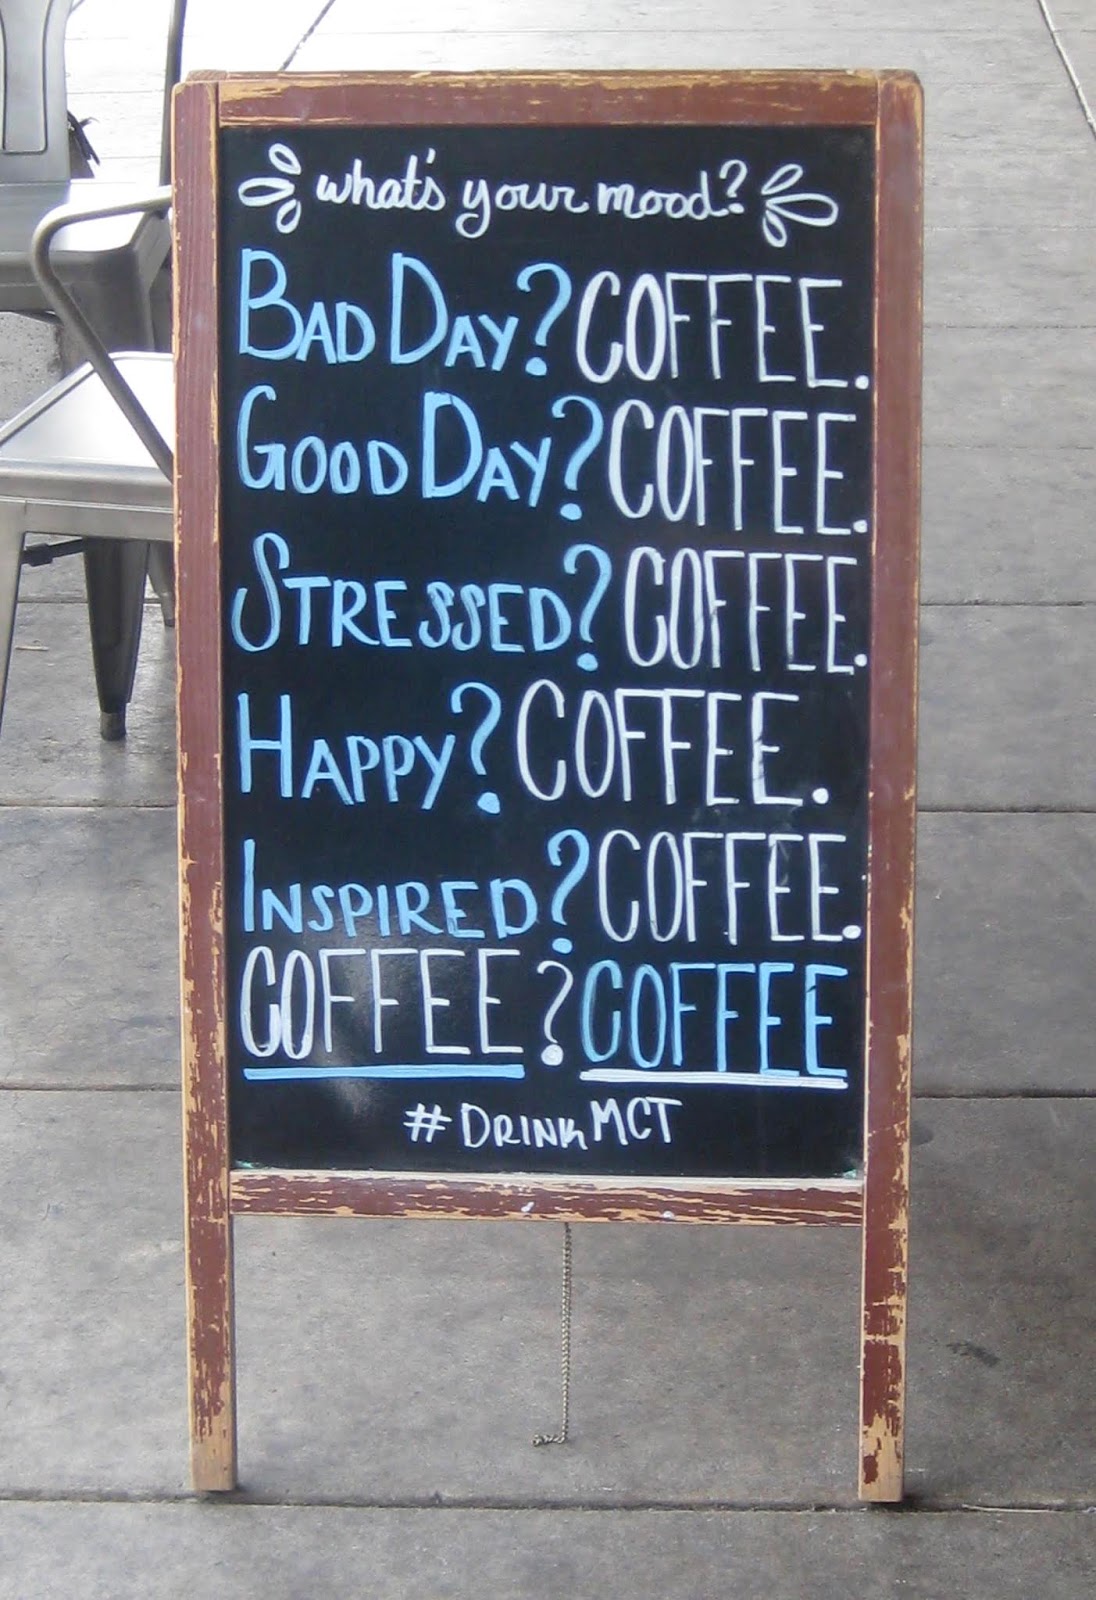 what's your mood?
BAD DAY? COFFEE.
GOOD DAY? COFFEE.
STRESSED? COFFEE.
HAPPY? COFFEE.
INSPIRED? COFFEE.
COFFEE? COFFEE
#DRINKMCT